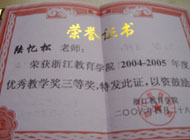 荣誉证书
陆忆松 老师:
荣获浙江教育学院2004-2005年度
优秀教学奖三等奖,特发此证,以资鼓励
浙江教育学院
二〇〇六年四月二十日